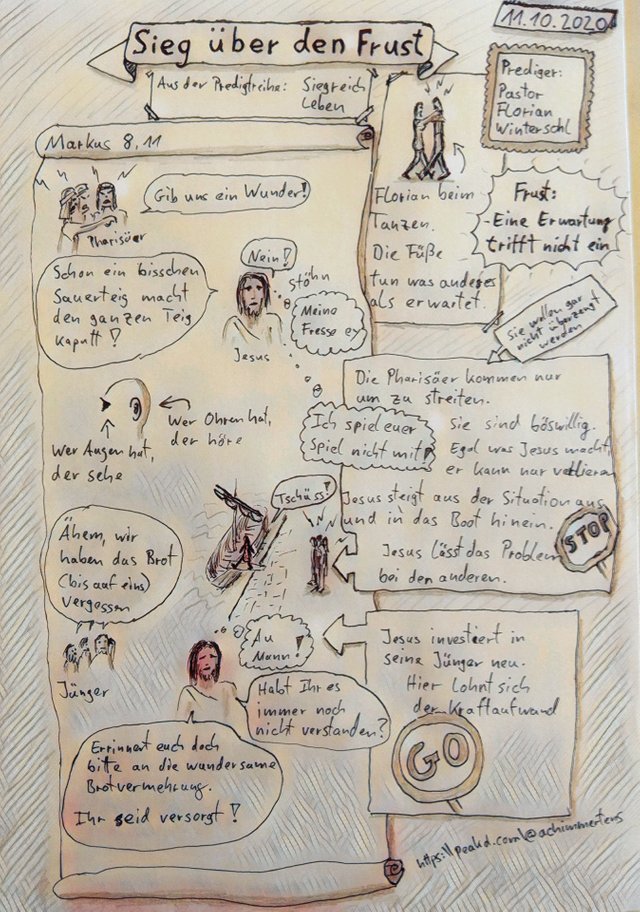 11.10.2020
Sieg über den Frust
Aus der Predigtreihe: Siegreich
Leben
Prediger:
Pastor
Florian
Winterschl
Markus 8,11
Gib uns ein Wunder!
Pharisäer
Florian beim
Tanzen.
Die Füße
tun was anderes
als erwartet.
Frust:
-Eine Erwartung
trifft nicht ein
Schon ein bisschen
Sauerteig macht
den ganzen Teig
kaputt!
Nein!
stöhn
Meine
Fresse ey
Jesus
Sie wollen gar
nicht überzeugt
werden
Die Pharisäer kommen nur
um zu streiten.
Sie sind böswillig.
Egal was Jesus macht,
er kann nur verlieren
Ich spiel euer
Spiel nicht mit!
Wer Ohren hat,
der höre
Wer Augen hat,
der sehe
Jesus steigt aus der Situation aus
und in das Boot hinein.
Jesus lässt das Problem
bei den anderen.
STOP
Tschüss!
Ähem, wir
haben das Brot
(bis auf eins)
vergessen
Jünger
Au
Mann!
Habt Ihr es
immer noch
nicht verstanden?
Jesus investiert in
seine Jünger neu.
Hier lohnt sich
der Kraftaufwand
GO
Errinnert euch doch
bitte an die wundersame
Brotvermehrung.
Ihr seid versorgt!
https://peakd.com/@achimmertens